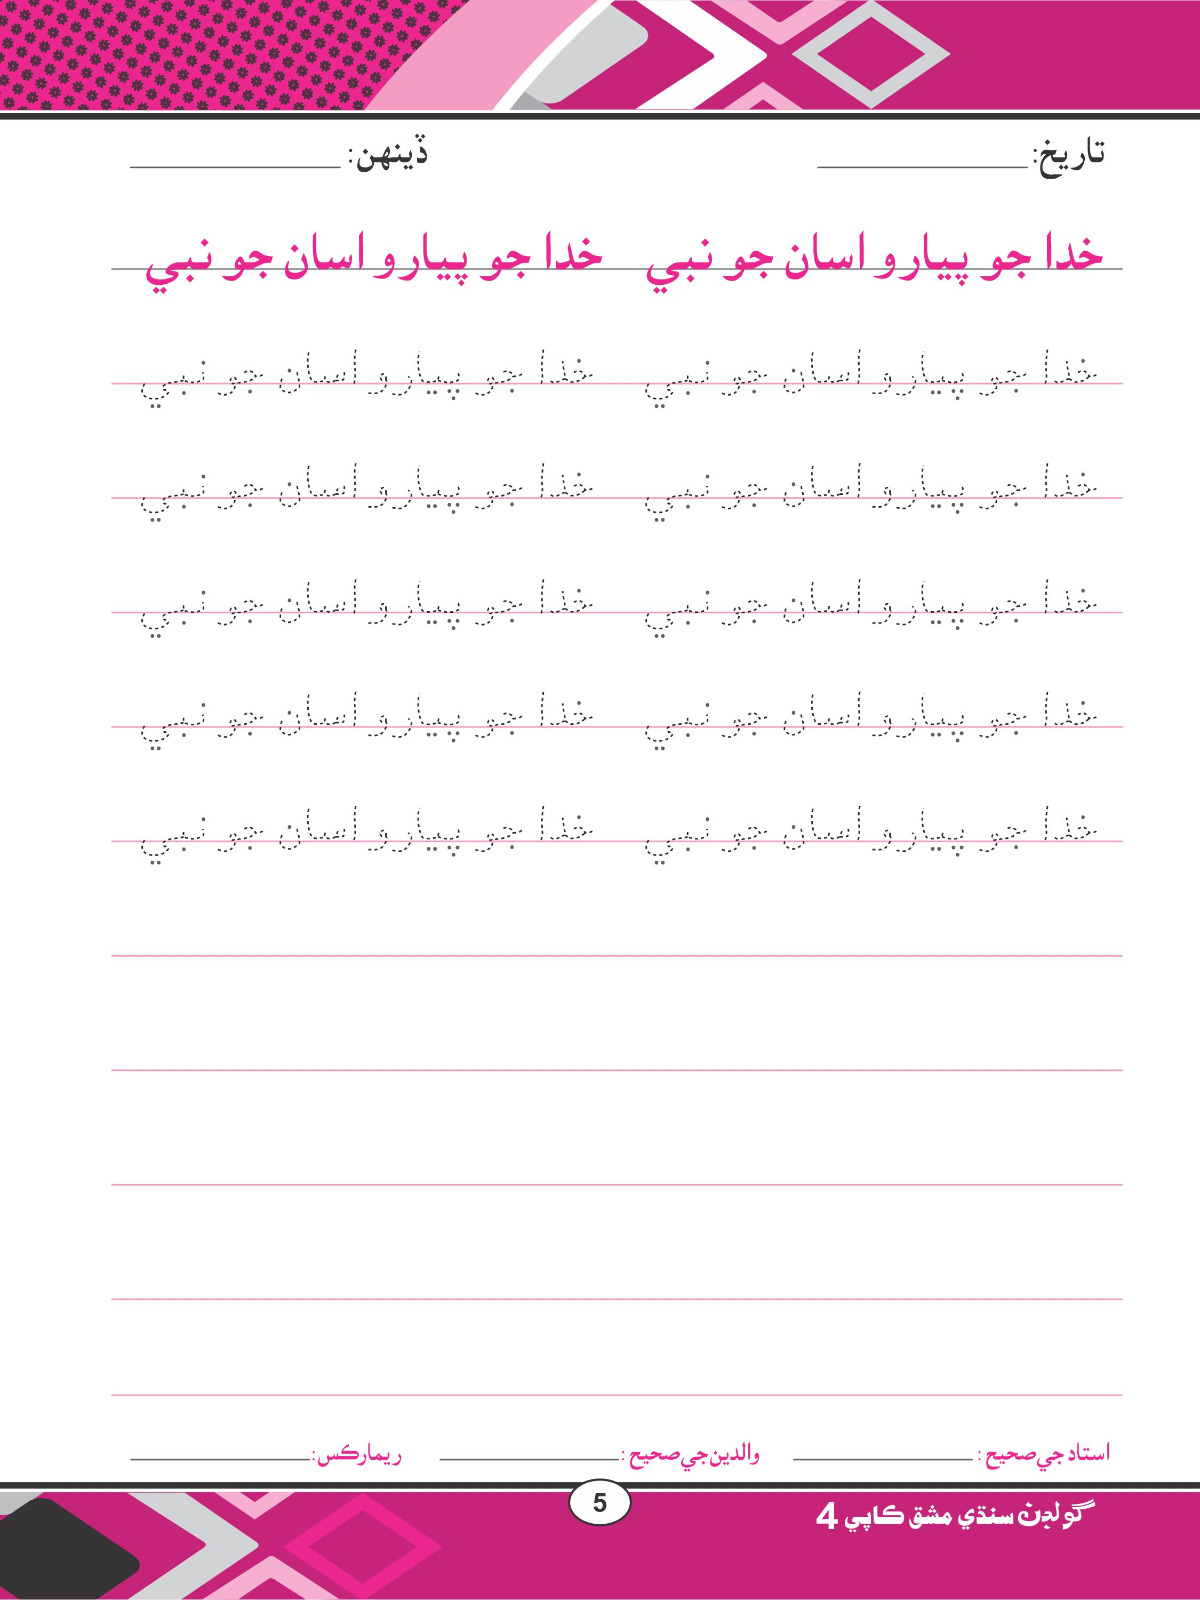 تاريخ: ڏينهن:
خدا جو پيارو اسان جو نبي خدا جو پيارو اسان جو نبي
خدا جو پيارو اسان جو نبي خدا جو پيارو اسان جو نبي
خدا جو پيارو اسان جو نبي خدا جو پيارو اسان جو نبي
خدا جو پيارو اسان جو نبي خدا جو پيارو اسان جو نبي
خدا جو پيارو اسان جو نبي خدا جو پيارو اسان جو نبي
خدا جو پيارو اسان جو نبي خدا جو پيارو اسان جو نبي
استاد جي صحيح : والدين جي صحيح : ريمارڪس:
5
گولڊن سنڌي مشق ڪاپي 4